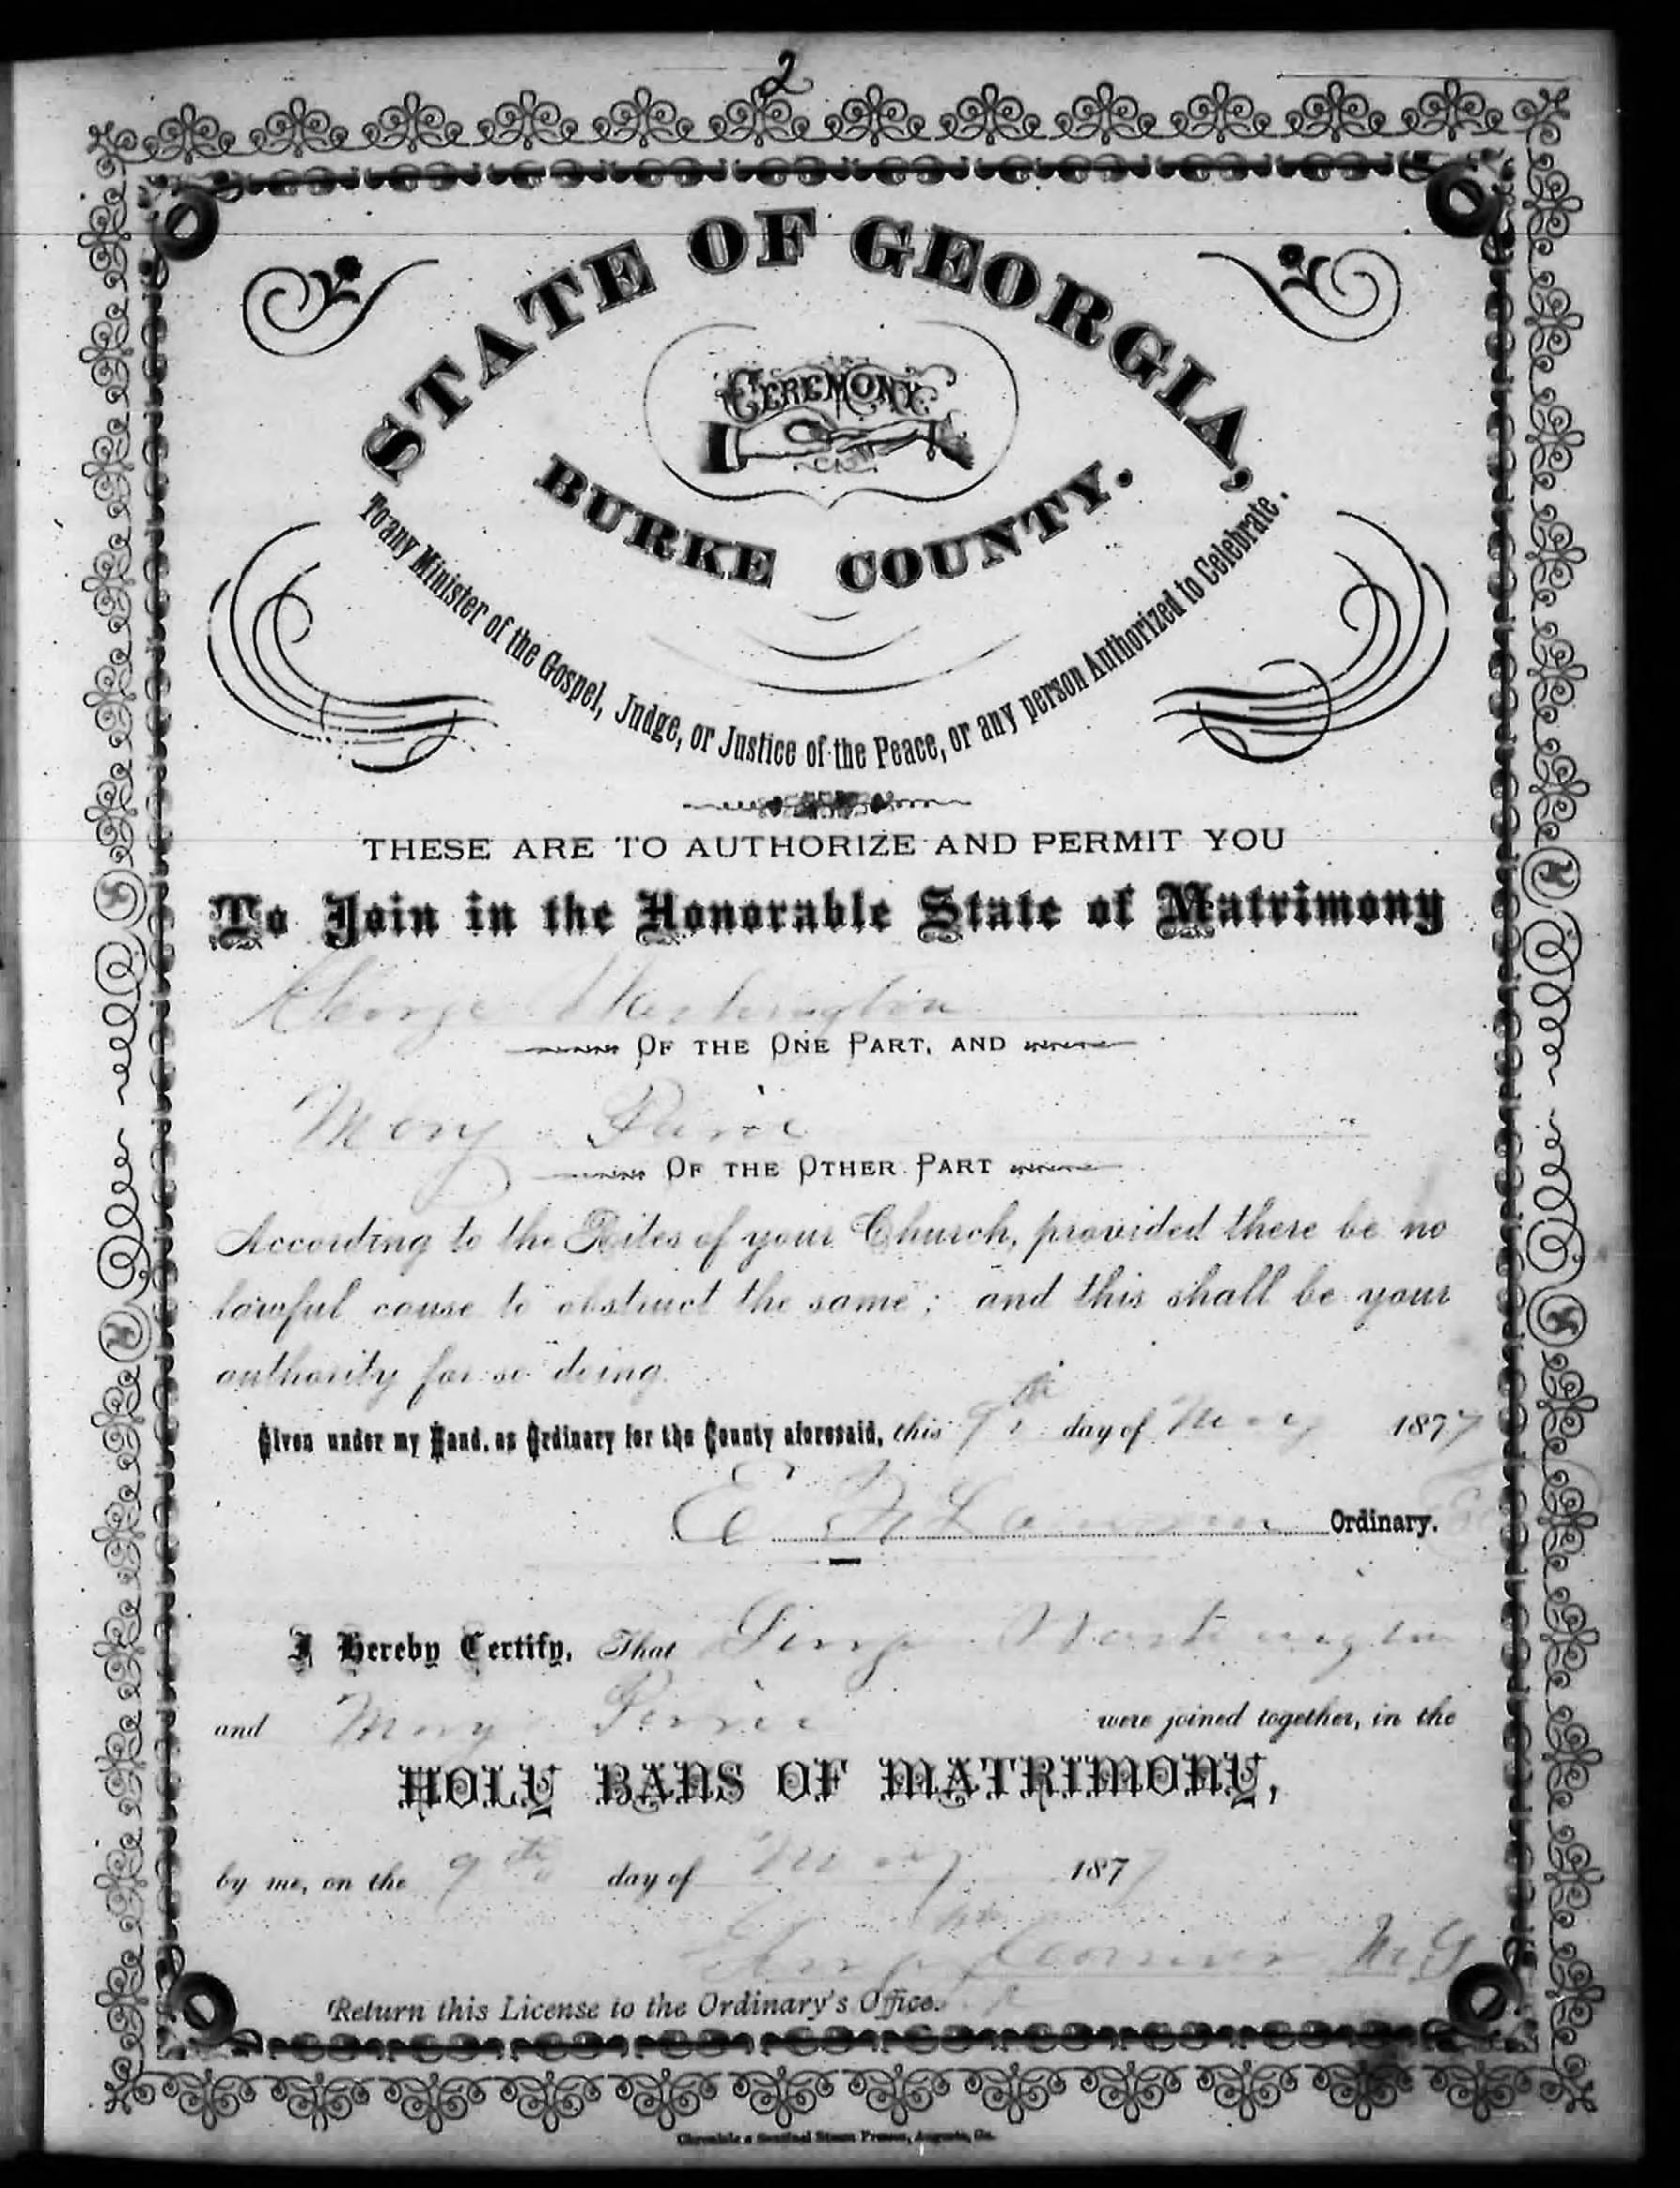 2
STATE OF GEORGIA,
CEREMONY
BURKE COUNTY.
To any Minister of the Gospel, Judge, or Justice of the Peace, or any person Authorized to Celebrate.
THESE ARE TO AUTHORIZE AND PERMIT YOU
To Join in the Honorable State of Matrimony
George Washington
OF THE ONE PART, AND
Mary
OF THE OTHER PART
According to the Rites of your Church, provided there be no
lawful cause to obstruct the same; and this shall be your
authority for so doing.
Given under my Hand, as Ordinary for the County aforesaid, this 9th day of May 1877
E F Lawson Ordinary.
I Hereby Certify, That George Washington
and Mary were joined together, in the
HOLY BANS OF MATRIMONY,
by me, on the 9th day of May 1877
M. G.
Return this License to the Ordinary's Office.
Chronicle & Sentinel Steam Presses, Augusta, Ga.